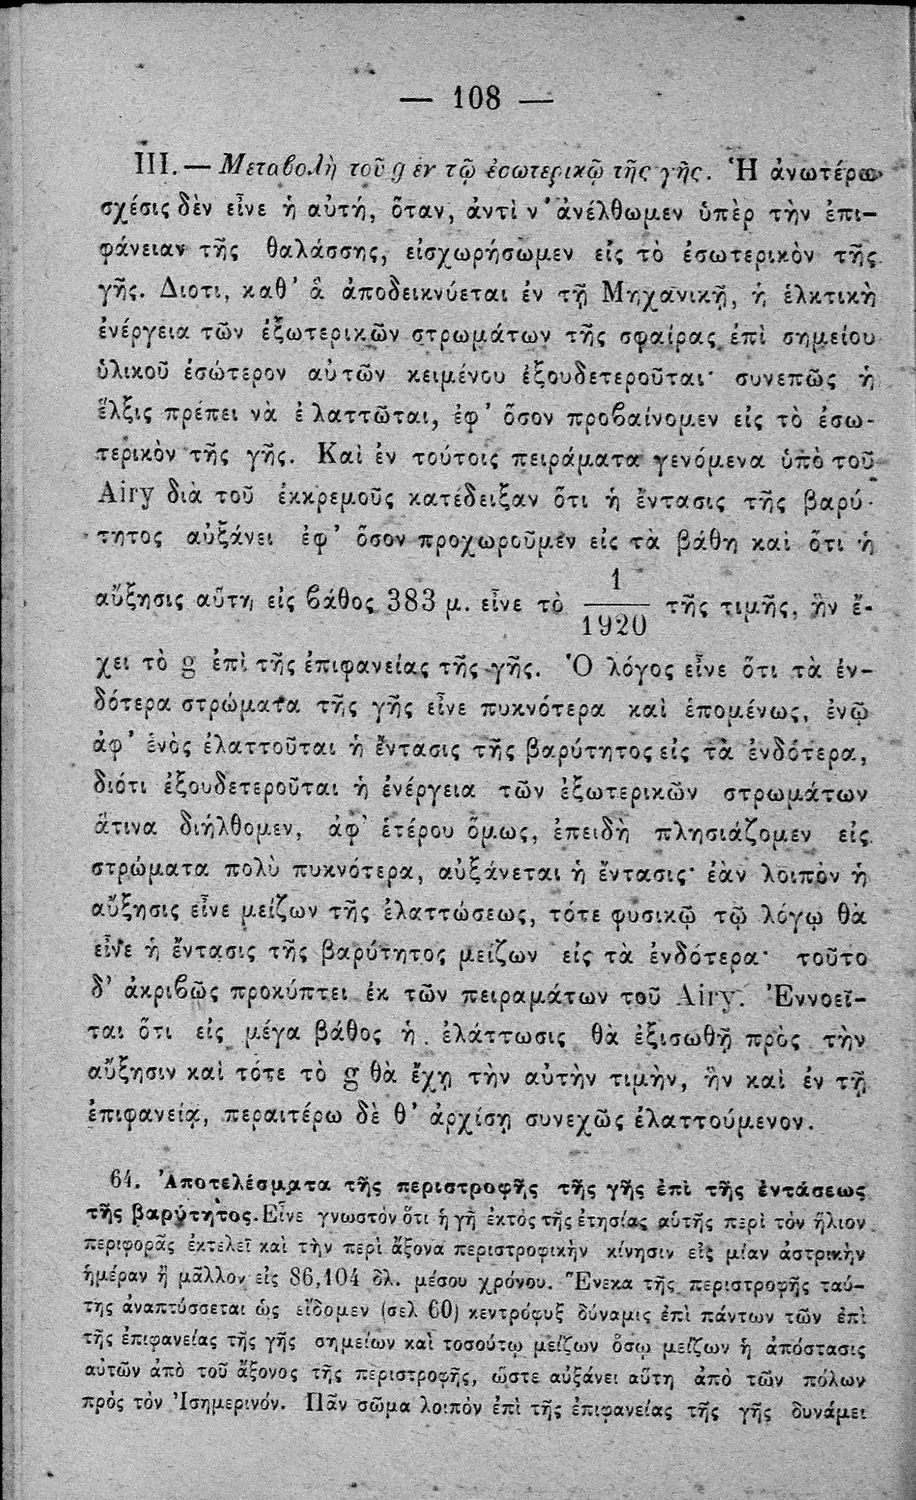 — 108 —
III. — Μεταβολὴ τοῦ g ἐν τῷ ἐσωτερικῷ τῆς γῆς. Ἡ ἀνωτέρω
σχέσις δὲν εἶνε ἡ αὐτή, ὅταν, ἀντὶ ν' ἀνέλθωμεν ὑπὲρ τὴν ἐπι-
φάνειαν τῆς θαλάσσης, εἰσχωρήσωμεν εἰς τὸ ἐσωτερικὸν τῆς
γῆς. Διοτι, καθ' ἃ ἀποδεικνύεται ἐν τῇ Μηχανικῇ, ἡ ἑλκτικὴ
ἐνέργεια τῶν ἐξωτερικῶν στρωμάτων τῆς σφαίρας ἐπὶ σημείου
ὑλικοῦ ἐσώτερον αὐτῶν κειμένου ἐξουδετεροῦται· συνεπῶς ἡ
ἕλξις πρέπει νὰ ἐλαττῶται, ἐφ' ὅσον προβαίνομεν εἰς τὸ ἐσω-
τερικὸν τῆς γῆς. Καὶ ἐν τούτοις πειράματα γενόμενα ὑπὸ τοῦ
Airy διὰ τοῦ ἐκκρεμοῦς κατέδειξαν ὅτι ἡ ἔντασις τῆς βαρύ-
τητος αὐξάνει ἐφ' ὅσον προχωροῦμεν εἰς τὰ βάθη καὶ ὅτι ἡ
αὔξησις αὕτη εἰς βάθος 383 μ. εἶνε τὸ 1/1920 τῆς τιμῆς, ἣν ἔ-
χει τὸ g ἐπὶ τῆς ἐπιφανείας τῆς γῆς. Ὁ λόγος εἶνε ὅτι τὰ ἐν-
δότερα στρώματα τῆς γῆς εἶνε πυκνότερα καὶ ἑπομένως, ἐνῷ
ἀφ' ἑνὸς ἐλαττοῦται ἡ ἔντασις τῆς βαρύτητος εἰς τὰ ἐνδότερα,
διότι ἐξουδετεροῦται ἡ ἐνέργεια τῶν ἐξωτερικῶν στρωμάτων
ἅτινα διήλθομεν, ἀφ' ἑτέρου ὅμως, ἐπειδὴ πλησιάζομεν εἰς
στρώματα πολὺ πυκνότερα, αὐξάνεται ἡ ἔντασις· ἐὰν λοιπὸν ἡ
αὔξησις εἶνε μείζων τῆς ἐλαττώσεως, τότε φυσικῷ τῷ λόγῳ θὰ
εἶνε ἡ ἔντασις τῆς βαρύτητος μείζων εἰς τὰ ἐνδότερα· τοῦτο
δ' ἀκριβῶς προκύπτει ἐκ τῶν πειραμάτων τοῦ Airy. Ἐννοεῖ-
ται ὅτι εἰς μέγα βάθος ἡ ἐλάττωσις θὰ ἐξισωθῇ πρὸς τὴν
αὔξησιν καὶ τότε τὸ g θὰ ἔχῃ τὴν αὐτὴν τιμὴν, ἣν καὶ ἐν τῇ
ἐπιφανείᾳ, περαιτέρω δὲ θ' ἀρχίσῃ συνεχῶς ἐλαττούμενον.
64. Ἀποτελέσματα τῆς περιστροφῆς τῆς γῆς ἐπὶ τῆς ἐντάσεως
τῆς βαρύτητος. Εἶνε γνωστὸν ὅτι ἡ γῆ ἐκτὸς τῆς ἐτησίας αὑτῆς περὶ τὸν ἥλιον
περιφορᾶς ἐκτελεῖ καὶ τὴν περὶ ἄξονα περιστροφικὴν κίνησιν εἰς μίαν ἀστρικὴν
ἡμέραν ἢ μᾶλλον εἰς 86,104 δλ. μέσου χρόνου. Ἕνεκα τῆς περιστροφῆς ταύ-
της ἀναπτύσσεται ὡς εἴδομεν (σελ 60) κεντρόφυξ δύναμις ἐπὶ πάντων τῶν ἐπὶ
τῆς ἐπιφανείας τῆς γῆς σημείων καὶ τοσούτῳ μείζων ὅσῳ μείζων ἡ ἀπόστασις
αὐτῶν ἀπὸ τοῦ ἄξονος τῆς περιστροφῆς, ὥστε αὐξάνει αὕτη ἀπὸ τῶν πόλων
πρὸς τὸν Ἰσημερινόν. Πᾶν σῶμα λοιπὸν ἐπὶ τῆς ἐπιφανείας τῆς γῆς δυνάμει